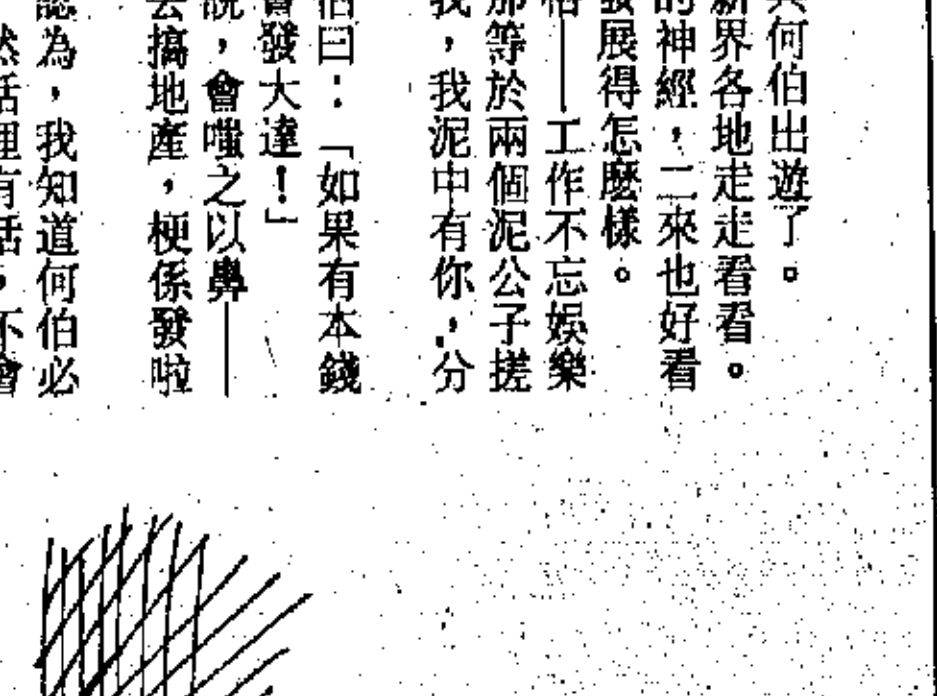 何伯出遊了。
新界各地走走看看。
的神經，二來也好看
發展得怎麼樣。
——工作不忘娛樂
那等於兩個泥公子搓
我，我泥中有你，分
伯曰：「如果有本錢
會發大達！」
說，會嗤之以鼻——
去搞地產，梗係發啦
認為，我知道何伯必
然話裡有話，不會